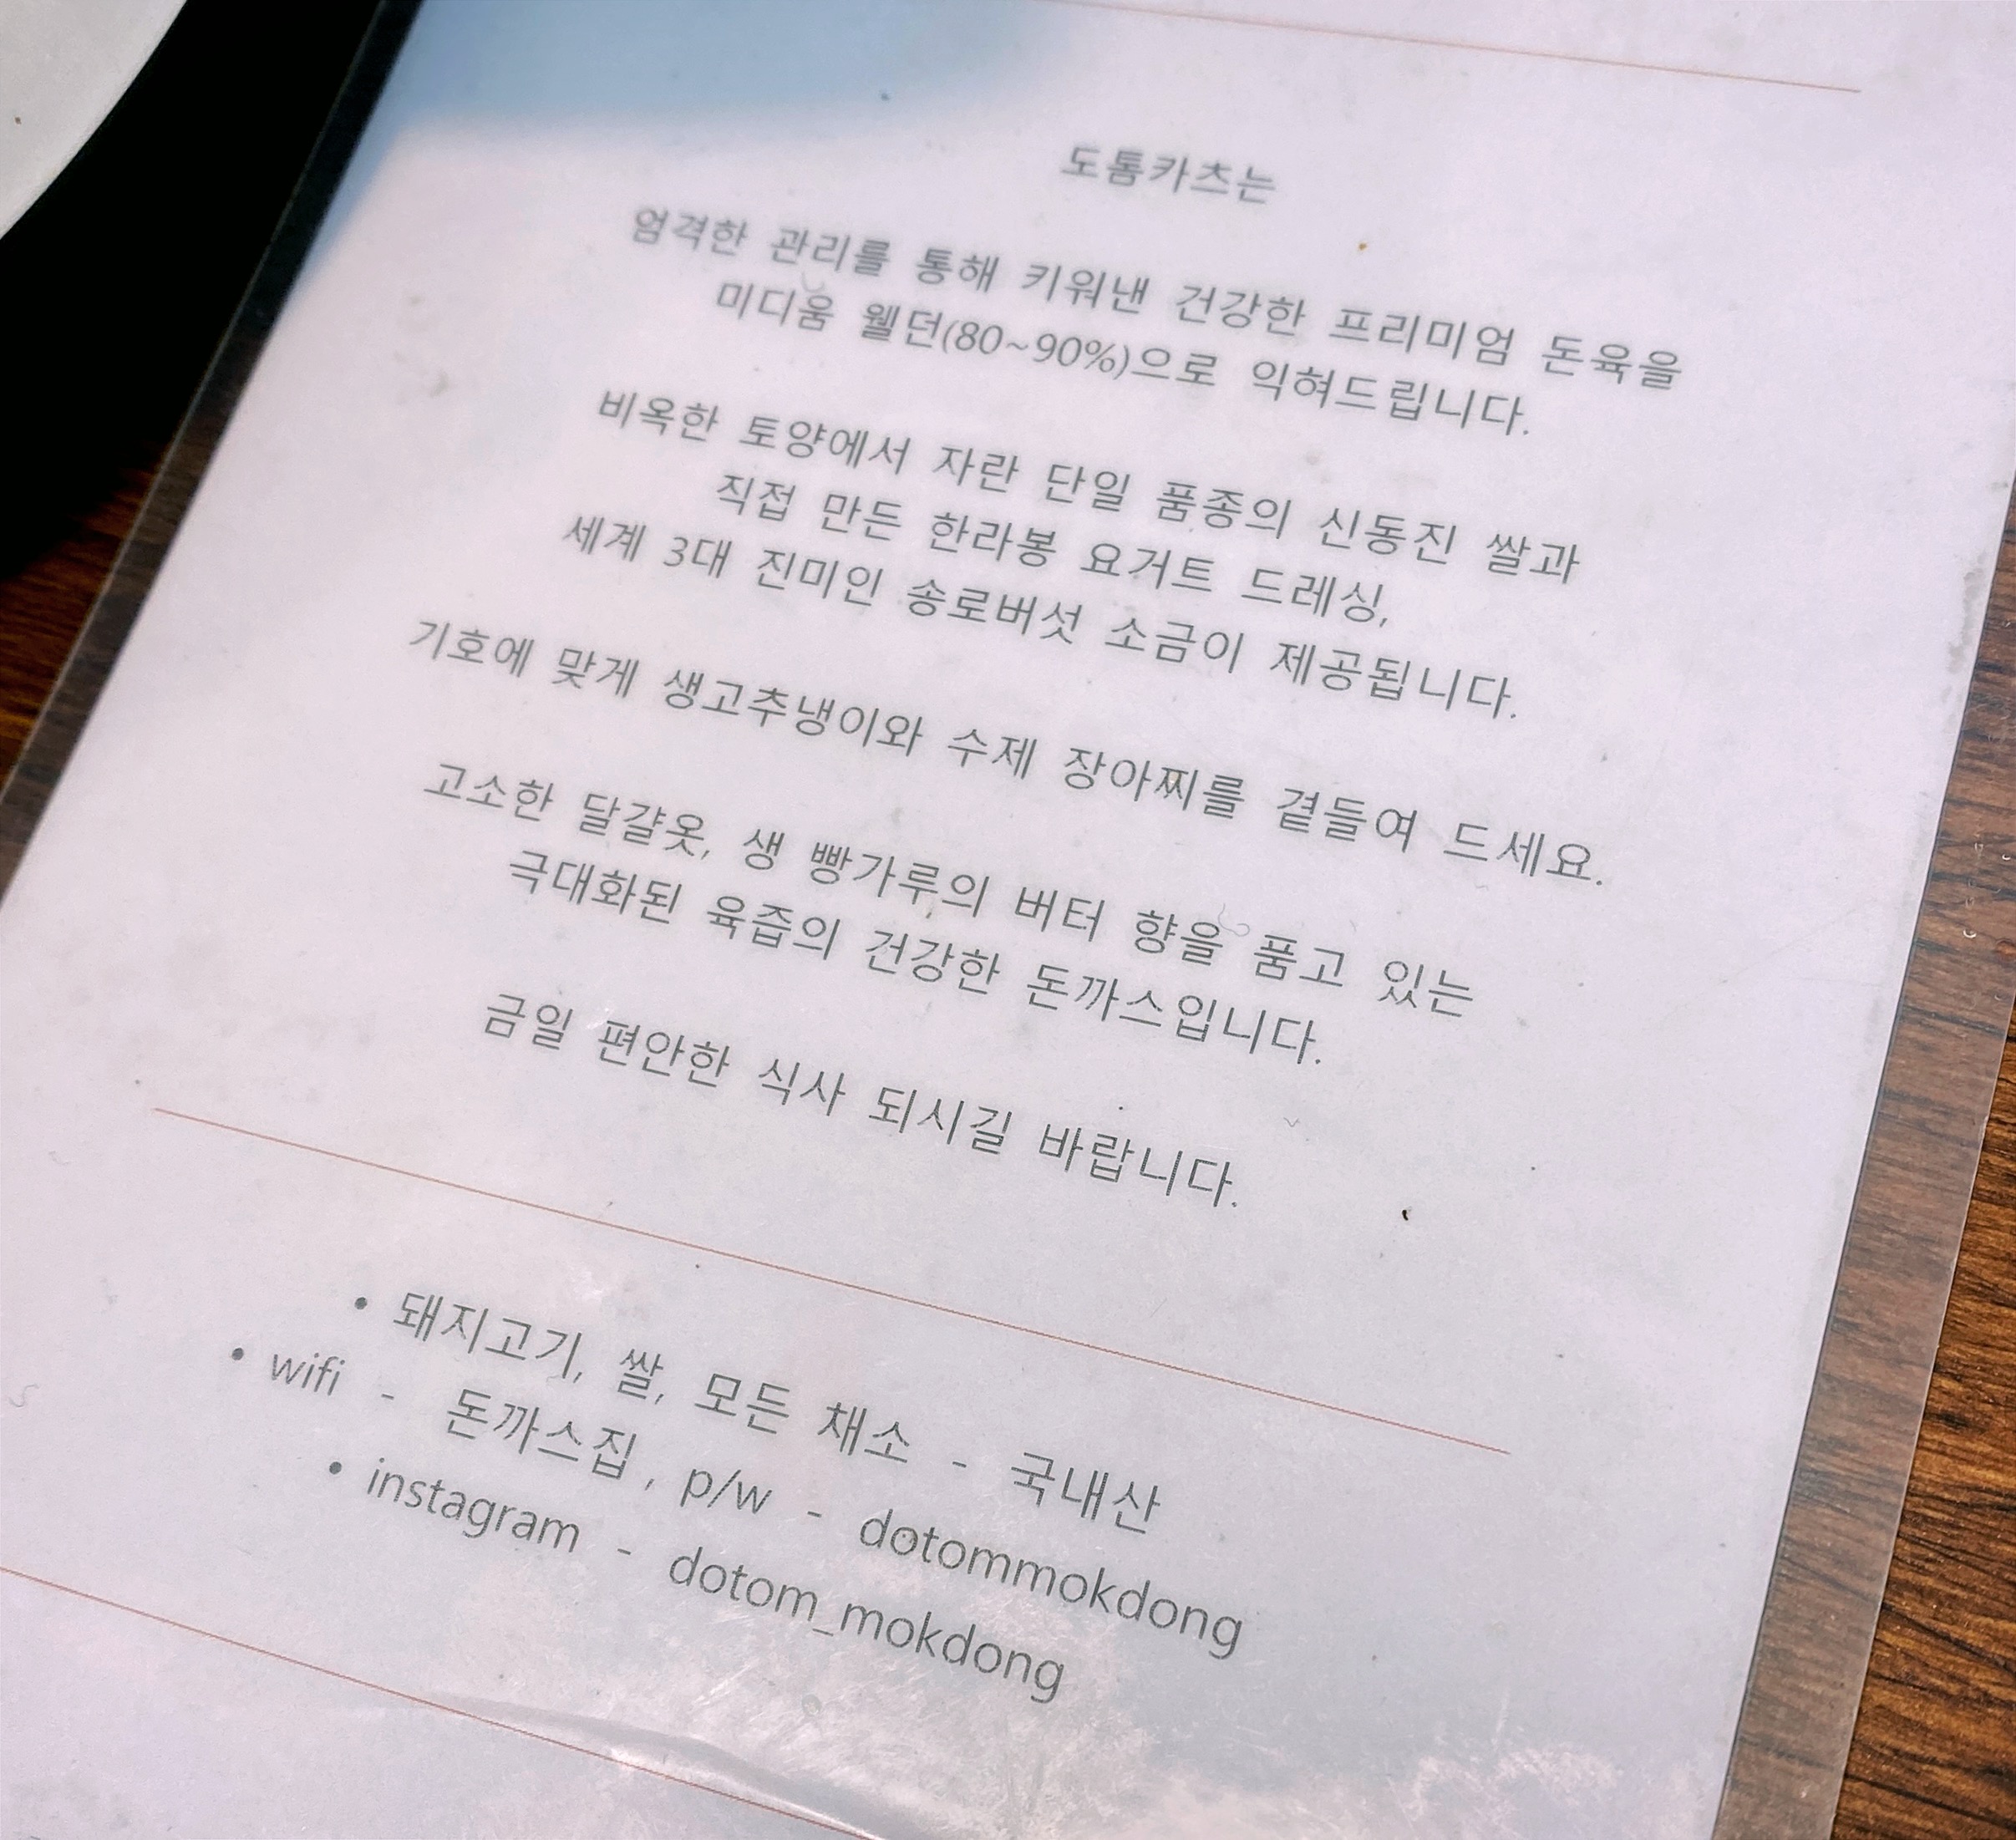 도톰카츠는
엄격한 관리를 통해 키워낸 건강한 프리미엄 돈육을
미디움 웰던(80~90%)으로 익혀드립니다.
비옥한 토양에서 자란 단일 품종의 신동진 쌀과
직접 만든 한라봉 요거트 드레싱,
세계 3대 진미인 송로버섯 소금이 제공됩니다.
기호에 맞게 생고추냉이와 수제 장아찌를 곁들여 드세요.
고소한 달걀옷, 생 빵가루의 버터 향을 품고 있는
극대화된 육즙의 건강한 돈까스입니다.
금일 편안한 식사 되시길 바랍니다.
• 돼지고기, 쌀, 모든 채소 - 국내산
• wifi - 돈까스집, p/w - dotommokdong
• instagram - dotom_mokdong